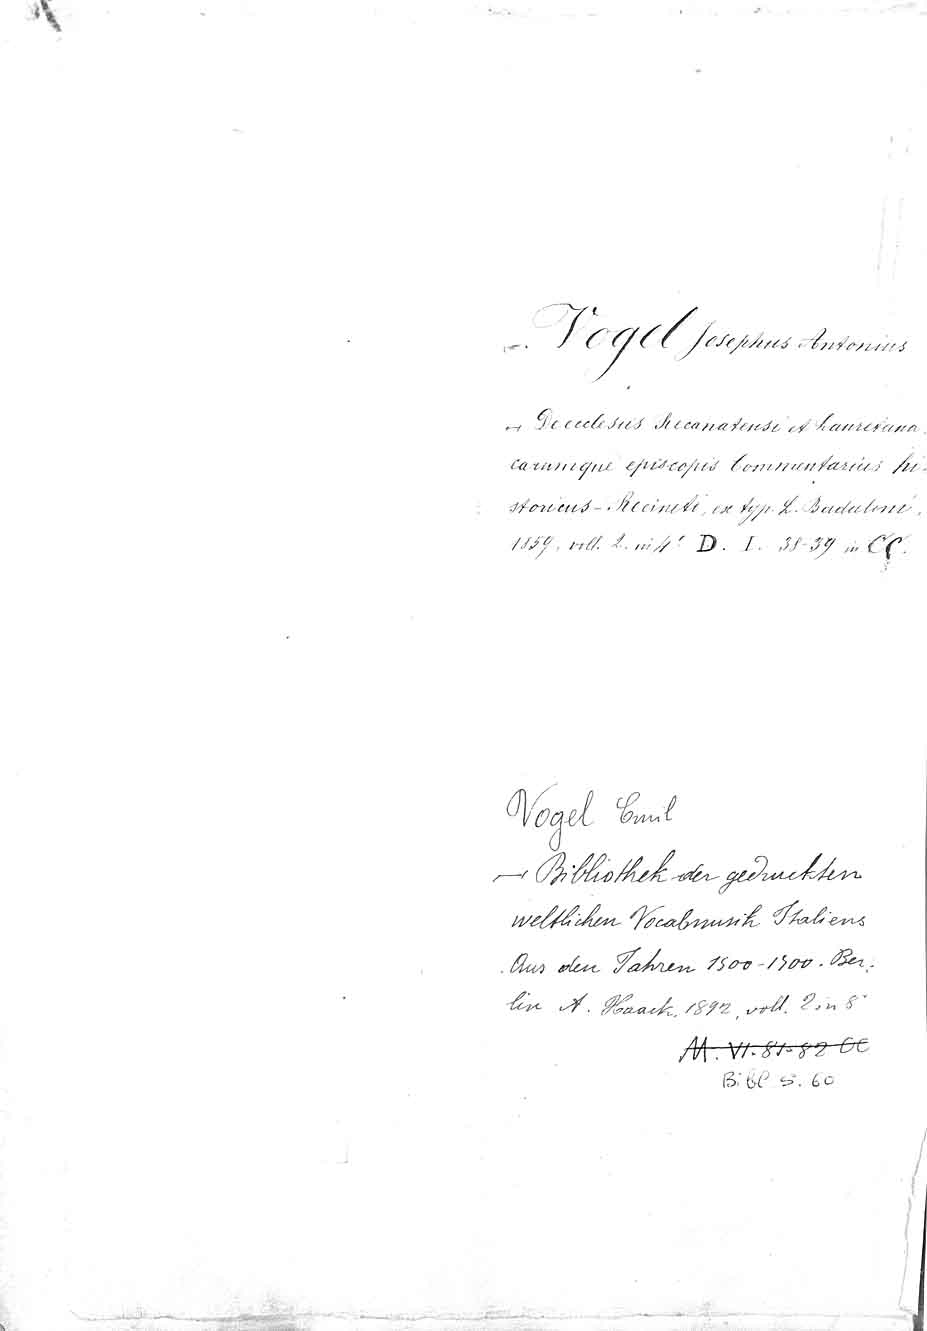 Vogel Josephus Antonius
— De ecclesiis Recanatensi et Lauretana
earumque episcopis Commentarius hi-
storicus - Recineti, ex typ. L. Badaloni,
1859, voll. 2. in 4° D. I. 38-39 in CC.
Vogel Emil
— Bibliothek der gedruckten
weltlichen Vocalmusik Italiens
Aus den Jahren 1500-1700. Ber-
lin A. Haack, 1892, voll. 2 in 8°
M. VI. 81-82 CC
Bibl S. 60